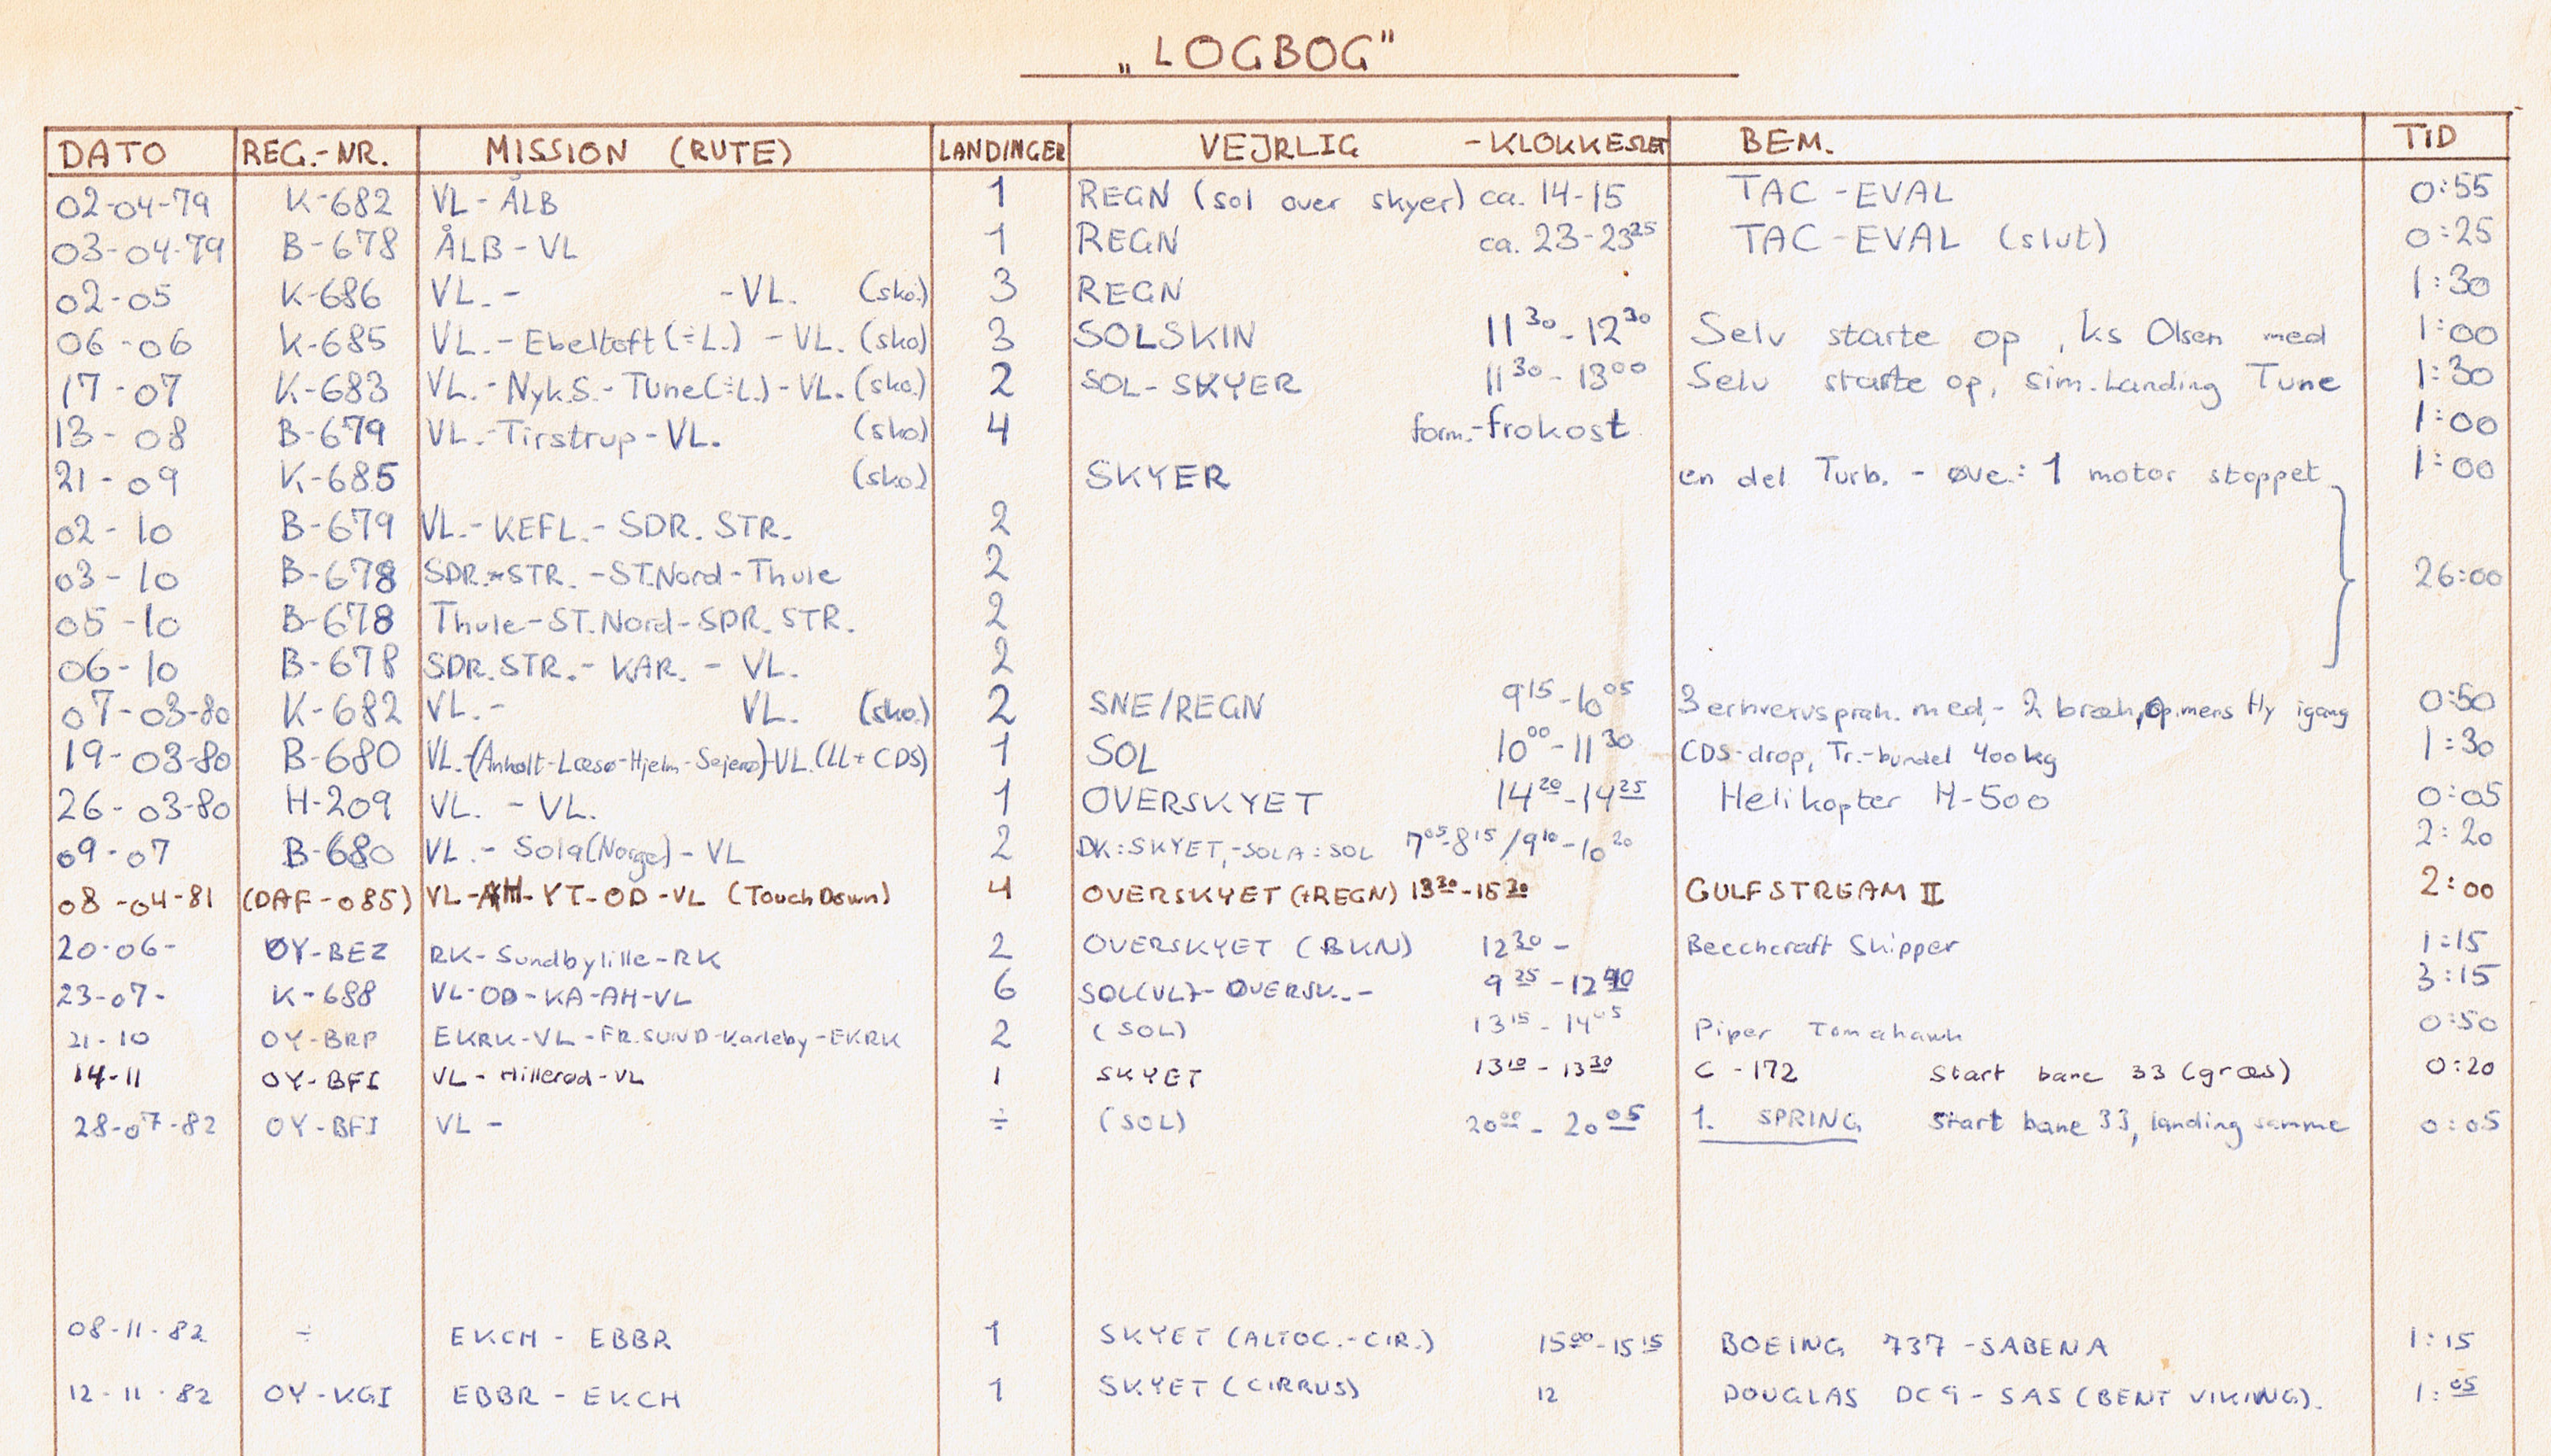 „LOGBOG"
DATO REG.-NR. MISSION (RUTE) LANDINGER VEJRLIG -KLOKKESLET BEM. TID
02-04-79 K-682 VL-ÅLB 1 REGN (sol over skyer) ca. 14-15 TAC-EVAL 0:55
03-04-79 B-678 ÅLB-VL 1 REGN ca. 23-23²⁵ TAC-EVAL (slut) 0:25
02-05 K-686 VL.- -VL. (sko.) 3 REGN 1:30
06-06 K-685 VL.-Ebeltoft(÷L.) - VL. (sko) 3 SOLSKIN 11³⁰-12³⁰ Selv starte op, ks Olsen med 1:00
17-07 K-683 VL.-Nyk.S.-Tune(÷L.)-VL. (sko.) 2 SOL-SKYER 11³⁰-13⁰⁰ Selv starte op, sim.Landing Tune 1:30
13-08 B-679 VL.-Tirstrup-VL. (sko) 4 form.-frokost 1:00
21-09 K-685 (sko.) SKYER en del Turb. - øve.: 1 motor stoppet 1:00
02-10 B-679 VL.-KEFL.-SDR. STR. 2
03-10 B-678 SDR.STR.-ST.Nord-Thule 2 26:00
05-10 B-678 Thule-ST.Nord-SDR. STR. 2
06-10 B-678 SDR.STR.-KAR. - VL. 2
07-03-80 K-682 VL.- VL. (sko.) 2 SNE/REGN 9¹⁵-10⁰⁵ 3 erhvervsprak. med,- 2 bræk, op.mens fly igang 0:50
19-03-80 B-680 VL.-(Anholt-Læsø-Hjelm-Sejerø)-VL.(LL+CDS) 1 SOL 10⁰⁰-11³⁰ CDS-drop, Tr.-bundel 400kg 1:30
26-03-80 H-209 VL. - VL. 1 OVERSKYET 14²⁰-14²⁵ Helikopter H-500 0:05
09-07 B-680 VL.- Sola(Norge)-VL 2 DK:SKYET,-SOLA:SOL 7⁰⁵-8¹⁵/9¹⁰-10²⁰ 2:20
08-04-81 (DAF-085) VL-AH-YT-OD-VL (Touch Down) 4 OVERSKYET (+REGN) 13³⁰-15³⁰ GULFSTREAM II 2:00
20-06- OY-BEZ RK-Sundbylille-RK 2 OVERSKYET (BKN) 12³⁰- Beechcraft Skipper 1:15
23-07- K-688 VL-OD-KA-AH-VL 6 SOL(VL)-OVERSK.- 9²⁵-12⁴⁰ 3:15
21-10 OY-BRP EKRK-VL-FR.SUND-Karleby-EKRK 2 (SOL) 13¹⁵-14⁰⁵ Piper Tomahawk 0:50
14-11 OY-BFI VL-Hillerød-VL 1 SKYET 13¹⁰-13³⁰ C-172 Start bane 33 (græs) 0:20
28-07-82 OY-BFI VL - ÷ (SOL) 20⁰⁰-20⁰⁵ 1. SPRING Start bane 33, landing samme 0:05
08-11-82 ÷ EKCH - EBBR 1 SKYET (ALTOC.-CIR.) 15⁰⁰-15¹⁵ BOEING 737 -SABENA 1:15
12-11-82 OY-KGI EBBR - EKCH 1 SKYET (CIRRUS) 12 DOUGLAS DC9-SAS (BENT VIKING). 1:05